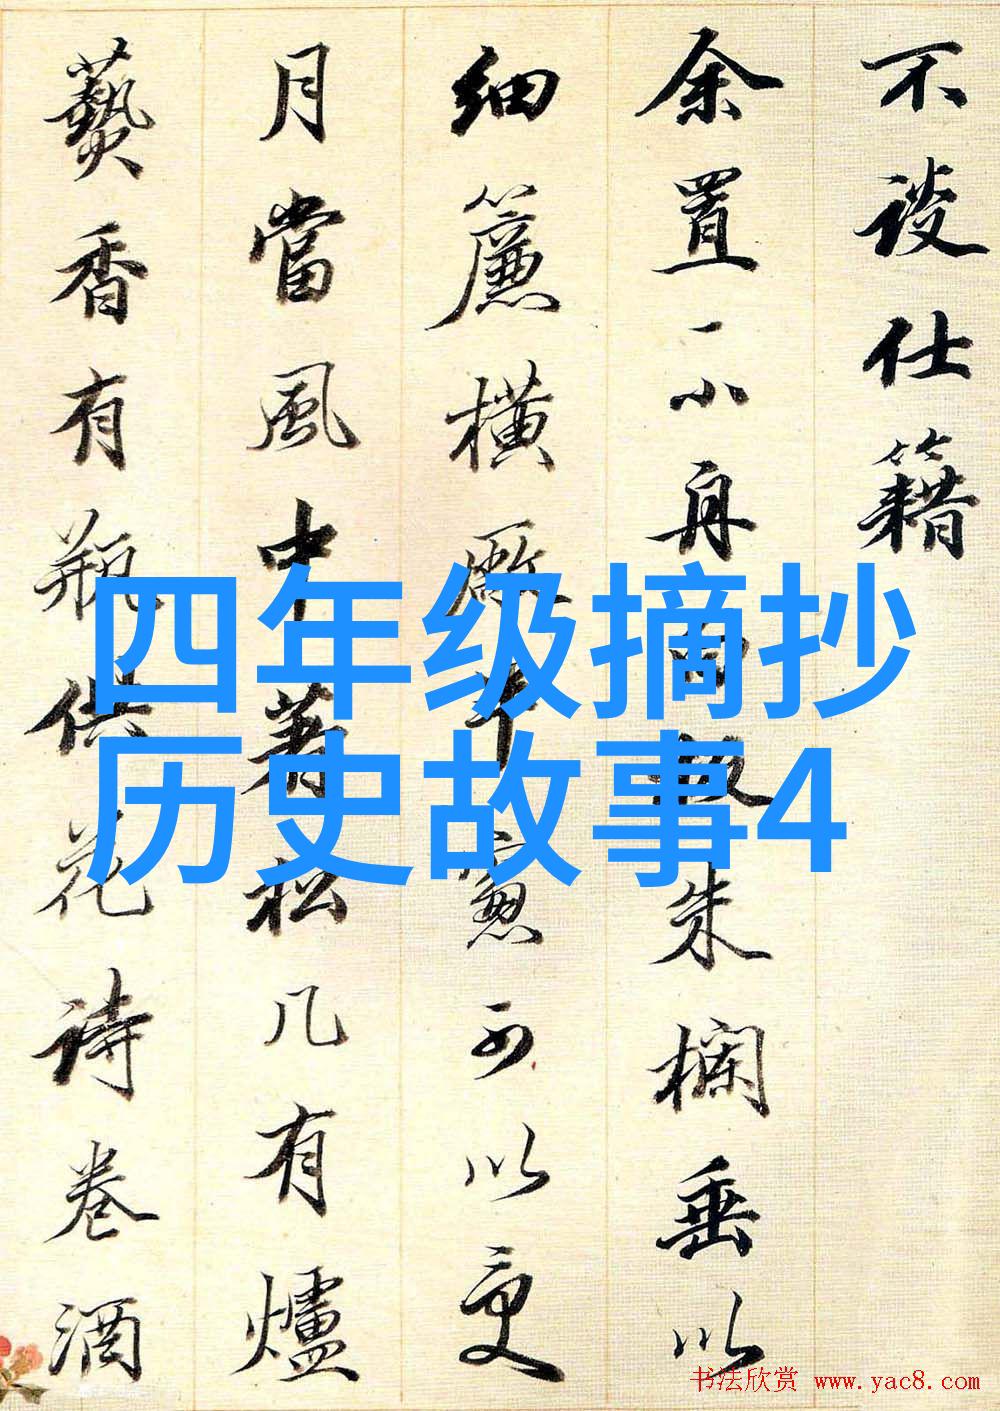 不談仕籍
余置一小舟朱欄垂以
細簾橫廠半窓可以受
月當風中著松几有爐
爇香有瓶供花詩卷酒
四年级摘抄
历史故事4
书法欣赏 www.yac8.com